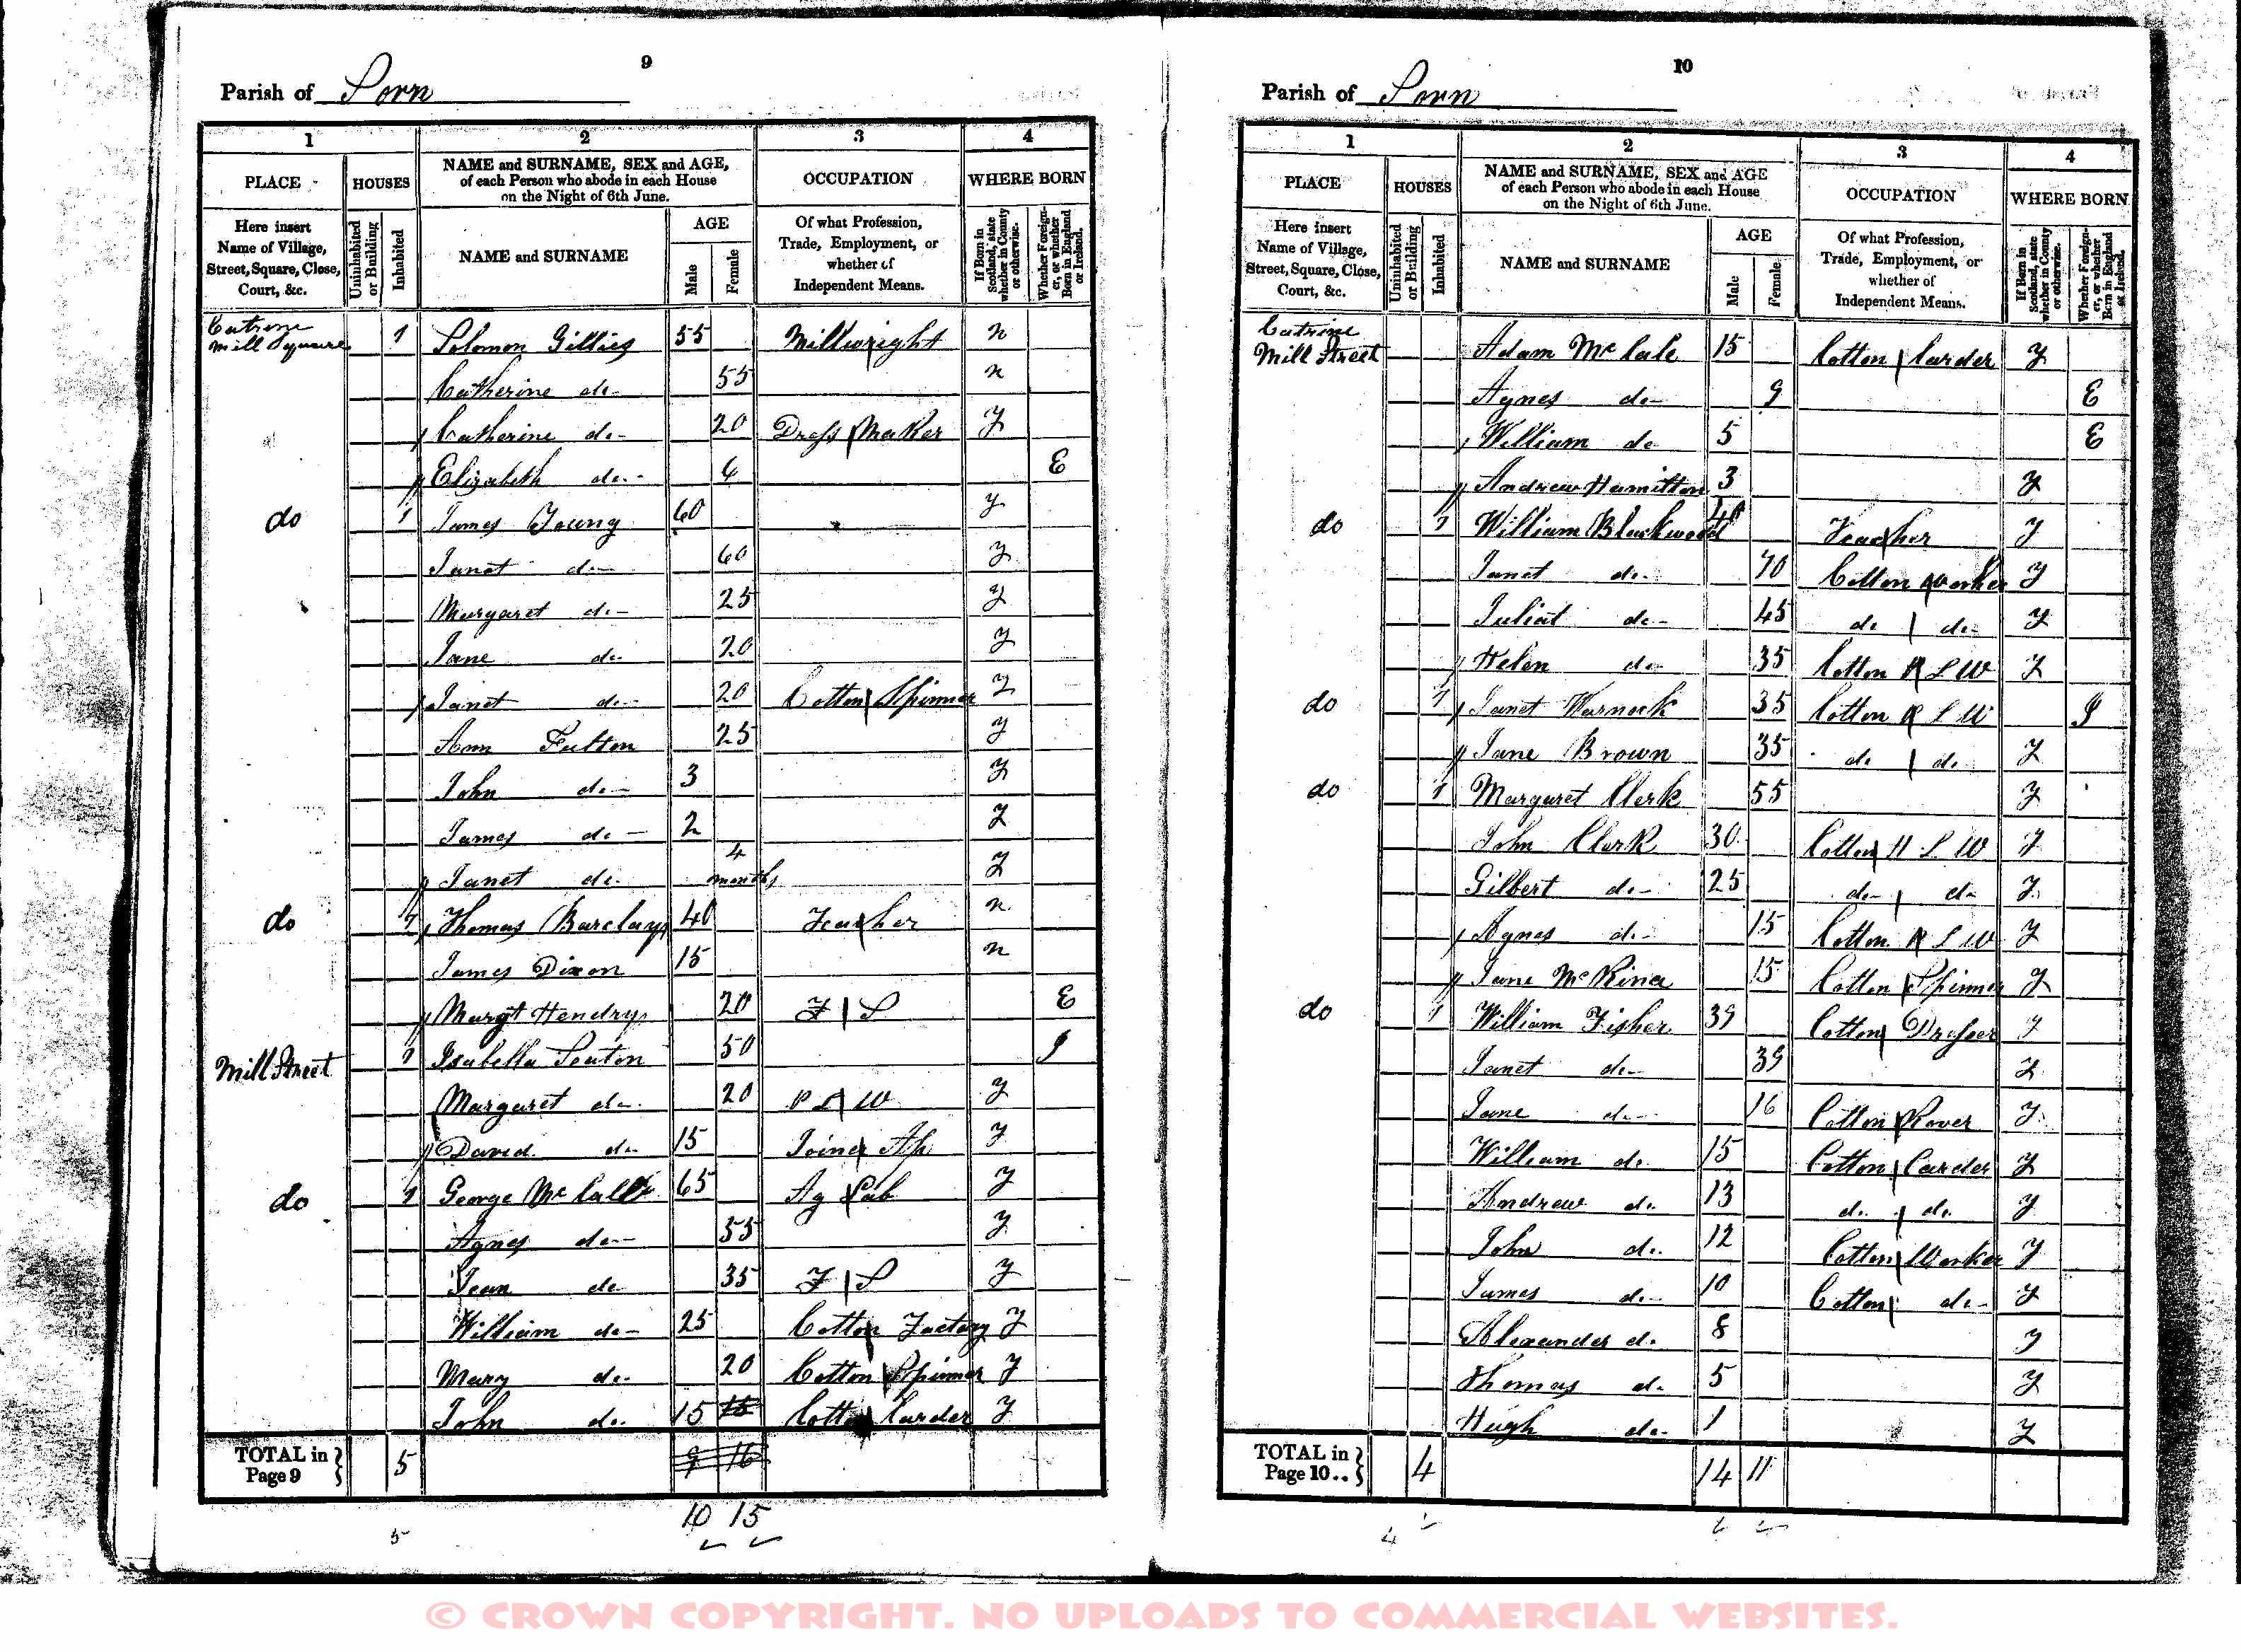 9
Parish of Sorn
1 2 3 4
PLACE HOUSES NAME and SURNAME, SEX and AGE, of each Person who abode in each House on the Night of 6th June. OCCUPATION WHERE BORN
Here insert Name of Village, Street, Square, Close, Court, &c. Uninhabited or Building Inhabited NAME and SURNAME AGE Male Female Of what Profession, Trade, Employment, or whether of Independent Means. If Born in Scotland, state whether in County or otherwise. Whether Foreigner, or whether Born in England or Ireland.
Catrine Mill Square 1 Solomon Gillies 55 Millwright n
Catherine do 55 n
Catherine do 20 Dress Maker y
Elizabeth do 6 E
do 1 James Young 60 y
Janet do 60 y
Margaret do 25 y
Jane do 20 y
Janet do 20 Cotton Spinner y
Ann Fulton 25 y
John do 3 y
James do 2 y
Janet do 4 months y
do 1 Thomas Barclay 40 Teacher n
James Dixon 15 n
Margt Hendry 20 F S E
Mill Street 1 Isabella Seaton 50 I
Margaret do 20 P L W y
David do 15 Joiner Ap y
do 1 George 65 Ag Lab y
Agnes do 55 y
Jean do 35 F S y
William do 25 Cotton Factory y
Mary do 20 Cotton Spinner y
John do 15 15 Cotton Carder y
TOTAL in Page 9 5 9 16
10 15
5
10
Parish of Sorn
1 2 3 4
PLACE HOUSES NAME and SURNAME, SEX and AGE of each Person who abode in each House on the Night of 6th June. OCCUPATION WHERE BORN
Here insert Name of Village, Street, Square, Close, Court, &c. Uninhabited or Building Inhabited NAME and SURNAME AGE Male Female Of what Profession, Trade, Employment, or whether of Independent Means. If Born in Scotland, state whether in County or otherwise. Whether Foreigner, or whether Born in England or Ireland.
Catrine Mill Street Adam 15 Cotton Carder y
Agnes do 9 E
William do 5 E
Andrew Hamilton 3 y
do 1 William Blackwood 40 Teacher y
Janet do 70 Cotton Worker y
Juliat do 45 do do y
Helen do 35 Cotton P L W y
do 1 Janet Warnock 35 Cotton P L W I
Jane Brown 35 do do y
do 1 Margaret Clerk 55 y
John Clark 30 Cotton H L W y
Gilbert do 25 do do y
Agnes do 15 Cotton P L W y
Jane 15 Cotton Spinner y
do 1 William Fisher 39 Cotton Dresser y
Janet do 39 y
Jane do 16 Cotton Rover y
William do 15 Cotton Carder y
Andrew do 13 do do y
John do 12 Cotton Worker y
James do 10 Cotton do y
Alexander do 8 y
Thomas do 5 y
Hugh do 1 y
TOTAL in Page 10.. 4 14 11
4
© CROWN COPYRIGHT. NO UPLOADS TO COMMERCIAL WEBSITES.